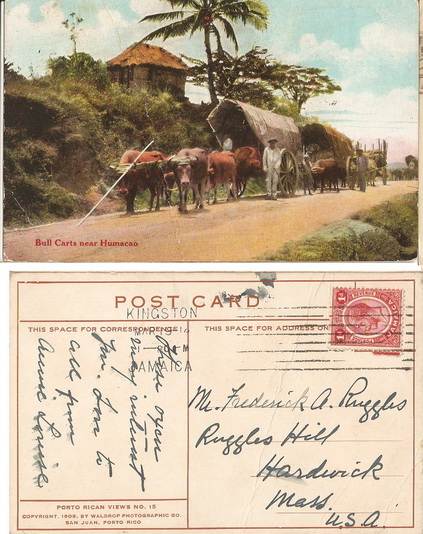 Bull Carts near Humacao
POST CARD
KINGSTON
MAR 19 14
JAMAICA
THIS SPACE FOR CORRESPONDENCE
THIS SPACE FOR ADDRESS ON
from
interest
to
all from
Mr. Frederick A. Ruggles
Ruggles Hill
Hardwick
Mass.
U.S.A.
PORTO RICAN VIEWS NO. 15
COPYRIGHT, 1909, BY WALDROP PHOTOGRAPHIC CO.
SAN JUAN, PORTO RICO